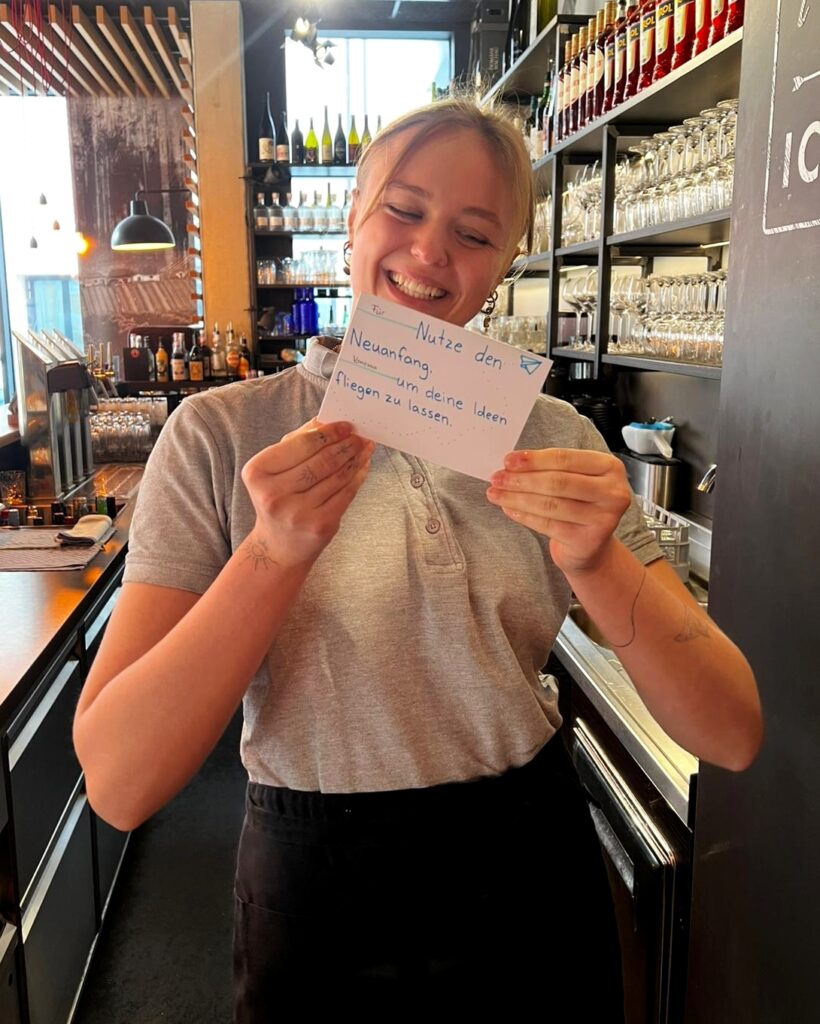 Für
Nutze den
Neuanfang,
um deine Ideen
fliegen zu lassen.
IC